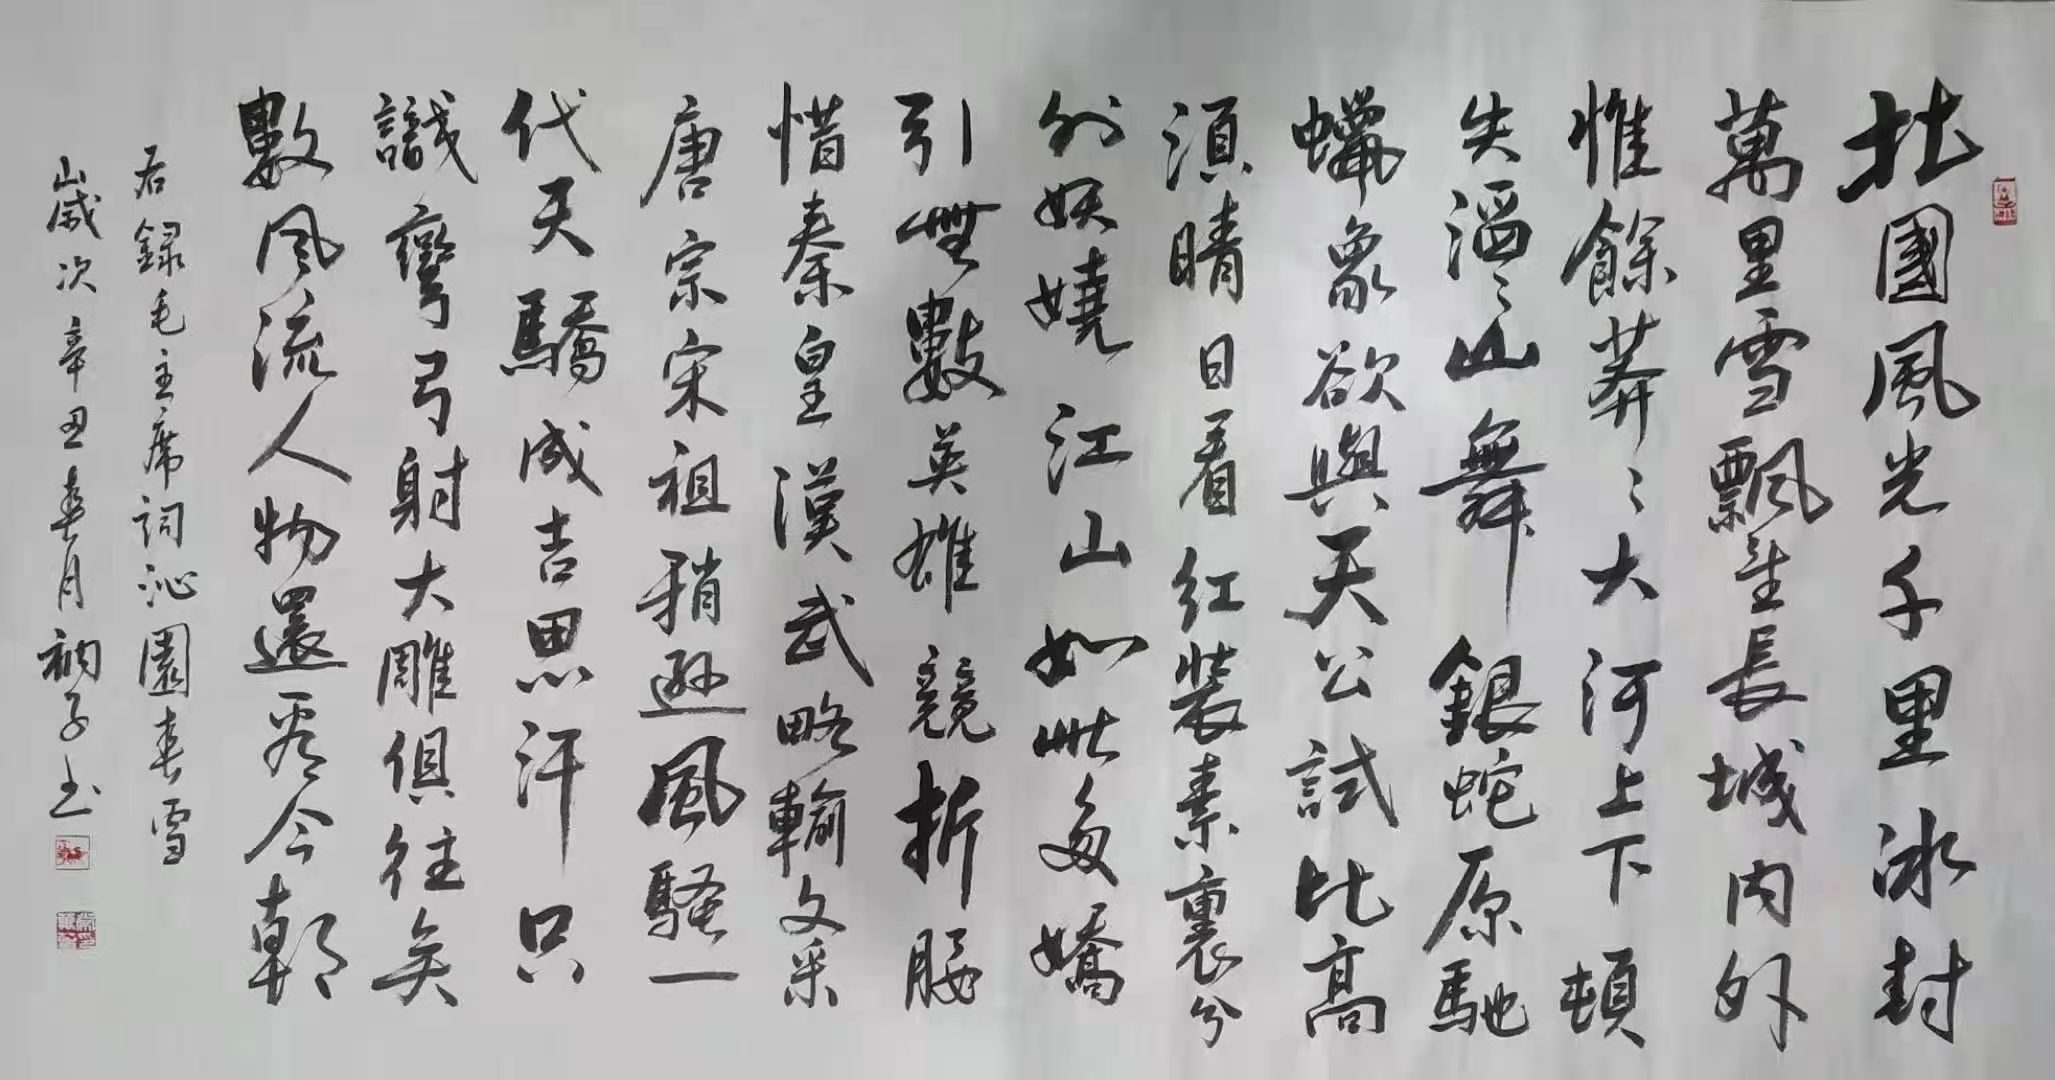 北國風光千里冰封
萬里雪飄望長城內外
惟餘莽〻大河上下頓
失滔〻山舞銀蛇原馳
蠟象欲與天公試比高
須晴日看红裝素裹分
外妖嬈江山如此多嬌
引無數英雄競折腰
惜秦皇漢武略輸文采
唐宗宋祖稍遜風騷一
代天驕成吉思汗只
識彎弓射大雕俱往矣
數风流人物還看今朝
右録毛主席詞沁園春雪
歲次辛丑春月衲子书